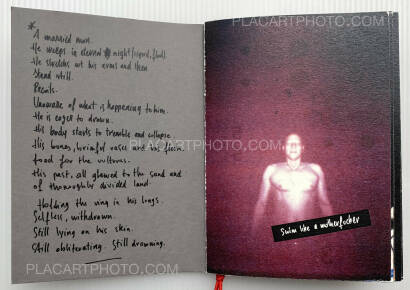 PLACARTPHOTO.COM
PLACARTPHOTO.COM
*
A married man.
He weeps in eleven night
He stretches out his arms and then
Stand still.
Recoils.
Unaware of what is happening to him.
He is eager to drown.
His body starts to tremble and collapse.
His bones, brimful vases and his flesh.
food for the vultures.
His past, all glowed to the sand and
of thoroughly divided land.
Holding the ring in his lungs.
Selfless, withdrawn.
Still lying on his skin.
Still obliterating. Still drowning.
Swim like a motherfucker
PLACARTPHOTO.COM
PLACARTPHOTO.COM
PLACARTPHOTO.COM
PLACARTPHOTO.COM